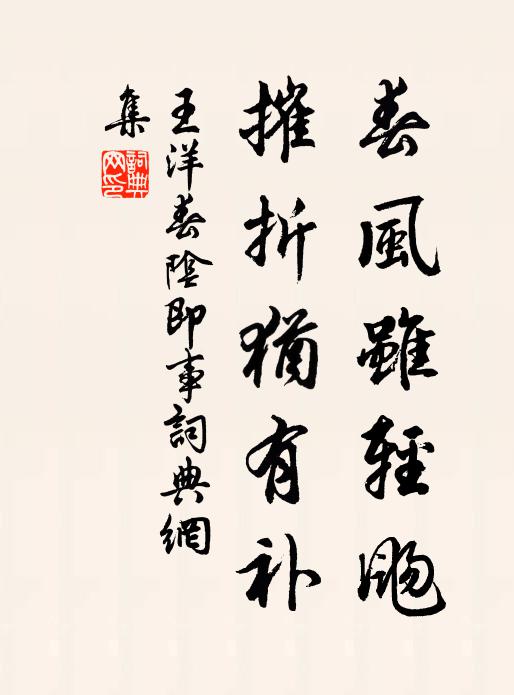 春風雖輕颺
摧折猶有补
王洋春陰即事詞典網
集
詞典網印